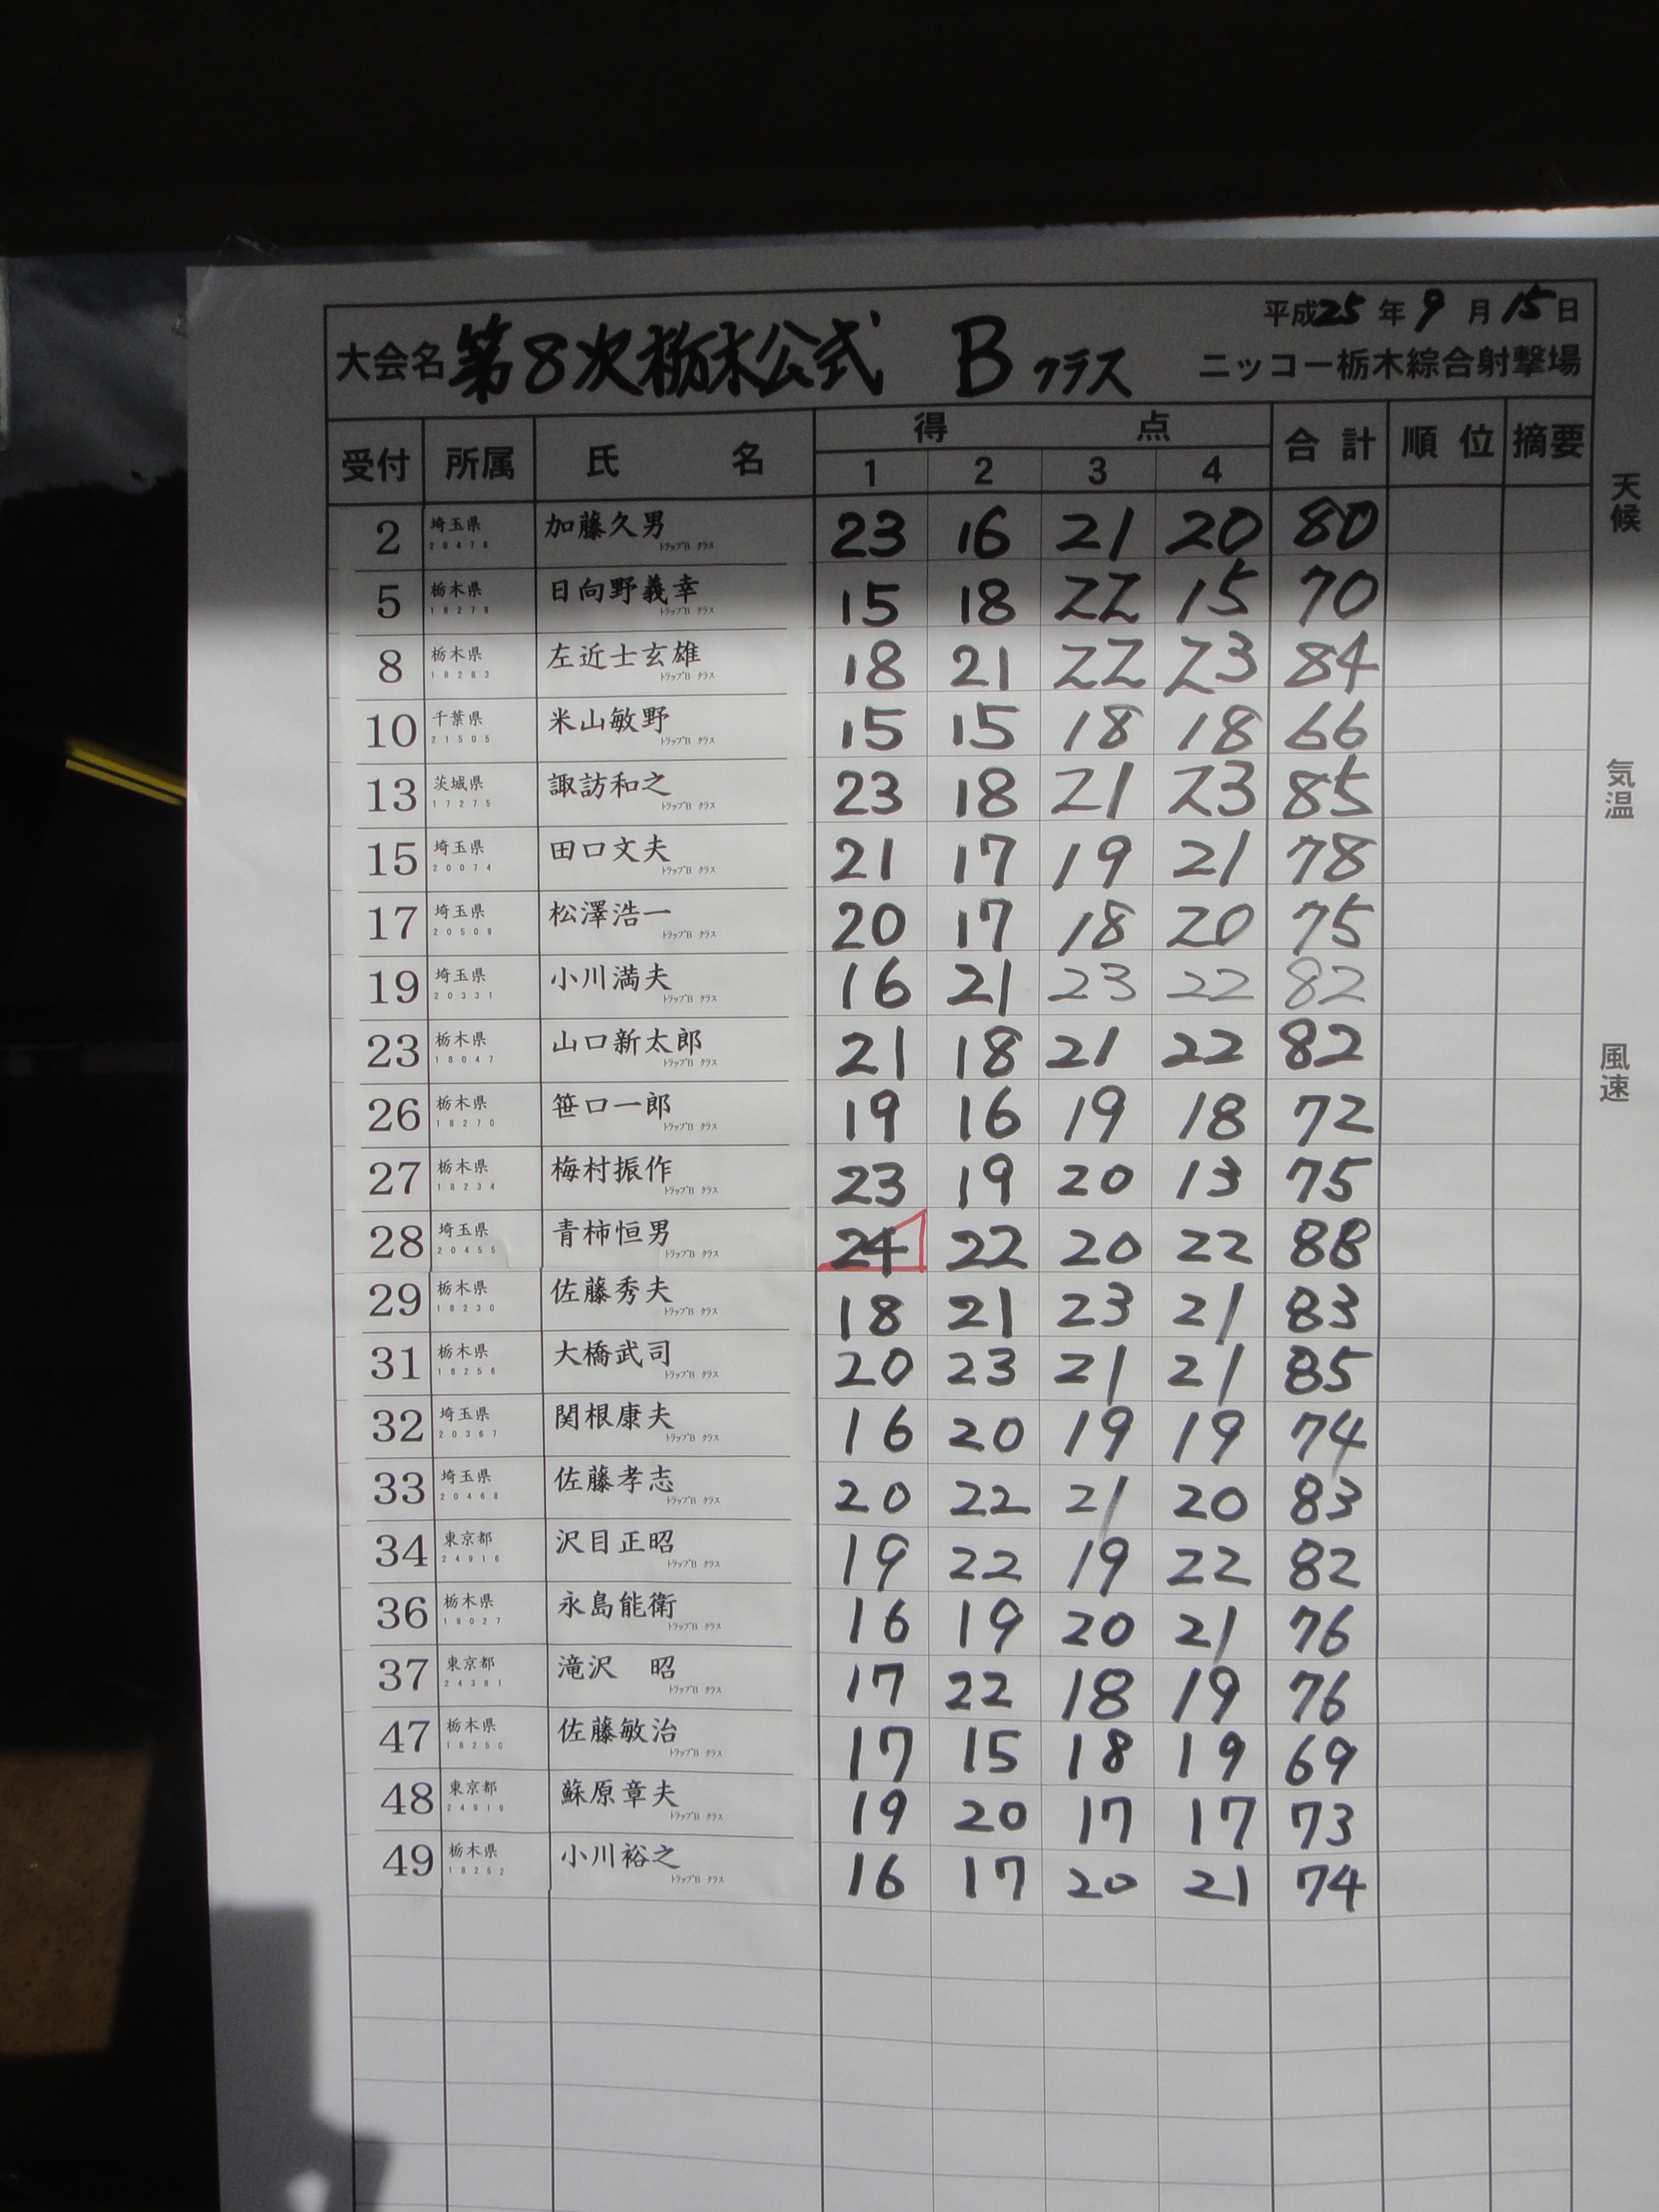 平成25年9月15日
大会名 第8次栃木公式 Bクラス ニッコー栃木綜合射撃場
受付 所属 氏名 得点 合計 順位 摘要
1 2 3 4
2 埼玉県 20478 加藤久男 トラップB クラス 23 16 21 20 80
5 栃木県 18279 日向野義幸 トラップB クラス 15 18 22 15 70
8 栃木県 18283 左近士玄雄 トラップB クラス 18 21 22 23 84
10 千葉県 21505 米山敏野 トラップB クラス 15 15 18 18 66
13 茨城県 17275 諏訪和之 トラップB クラス 23 18 21 23 85
15 埼玉県 20074 田口文夫 トラップB クラス 21 17 19 21 78
17 埼玉県 20509 松澤浩一 トラップB クラス 20 17 18 20 75
19 埼玉県 20331 小川満夫 トラップB クラス 16 21 23 22 82
23 栃木県 18047 山口新太郎 トラップB クラス 21 18 21 22 82
26 栃木県 18270 笹口一郎 トラップB クラス 19 16 19 18 72
27 栃木県 18234 梅村振作 トラップB クラス 23 19 20 13 75
28 埼玉県 20455 青柿恒男 トラップB クラス 24 22 20 22 88
29 栃木県 18230 佐藤秀夫 トラップB クラス 18 21 23 21 83
31 栃木県 18256 大橋武司 トラップB クラス 20 23 21 21 85
32 埼玉県 20367 関根康夫 トラップB クラス 16 20 19 19 74
33 埼玉県 20468 佐藤孝志 トラップB クラス 20 22 21 20 83
34 東京都 24916 沢目正昭 トラップB クラス 19 22 19 22 82
36 栃木県 18027 永島能衛 トラップB クラス 16 19 20 21 76
37 東京都 24381 滝沢 昭 トラップB クラス 17 22 18 19 76
47 栃木県 18250 佐藤敏治 トラップB クラス 17 15 18 19 69
48 東京都 24919 蘇原章夫 トラップB クラス 19 20 17 17 73
49 栃木県 18252 小川裕之 トラップB クラス 16 17 20 21 74
天候
気温
風速